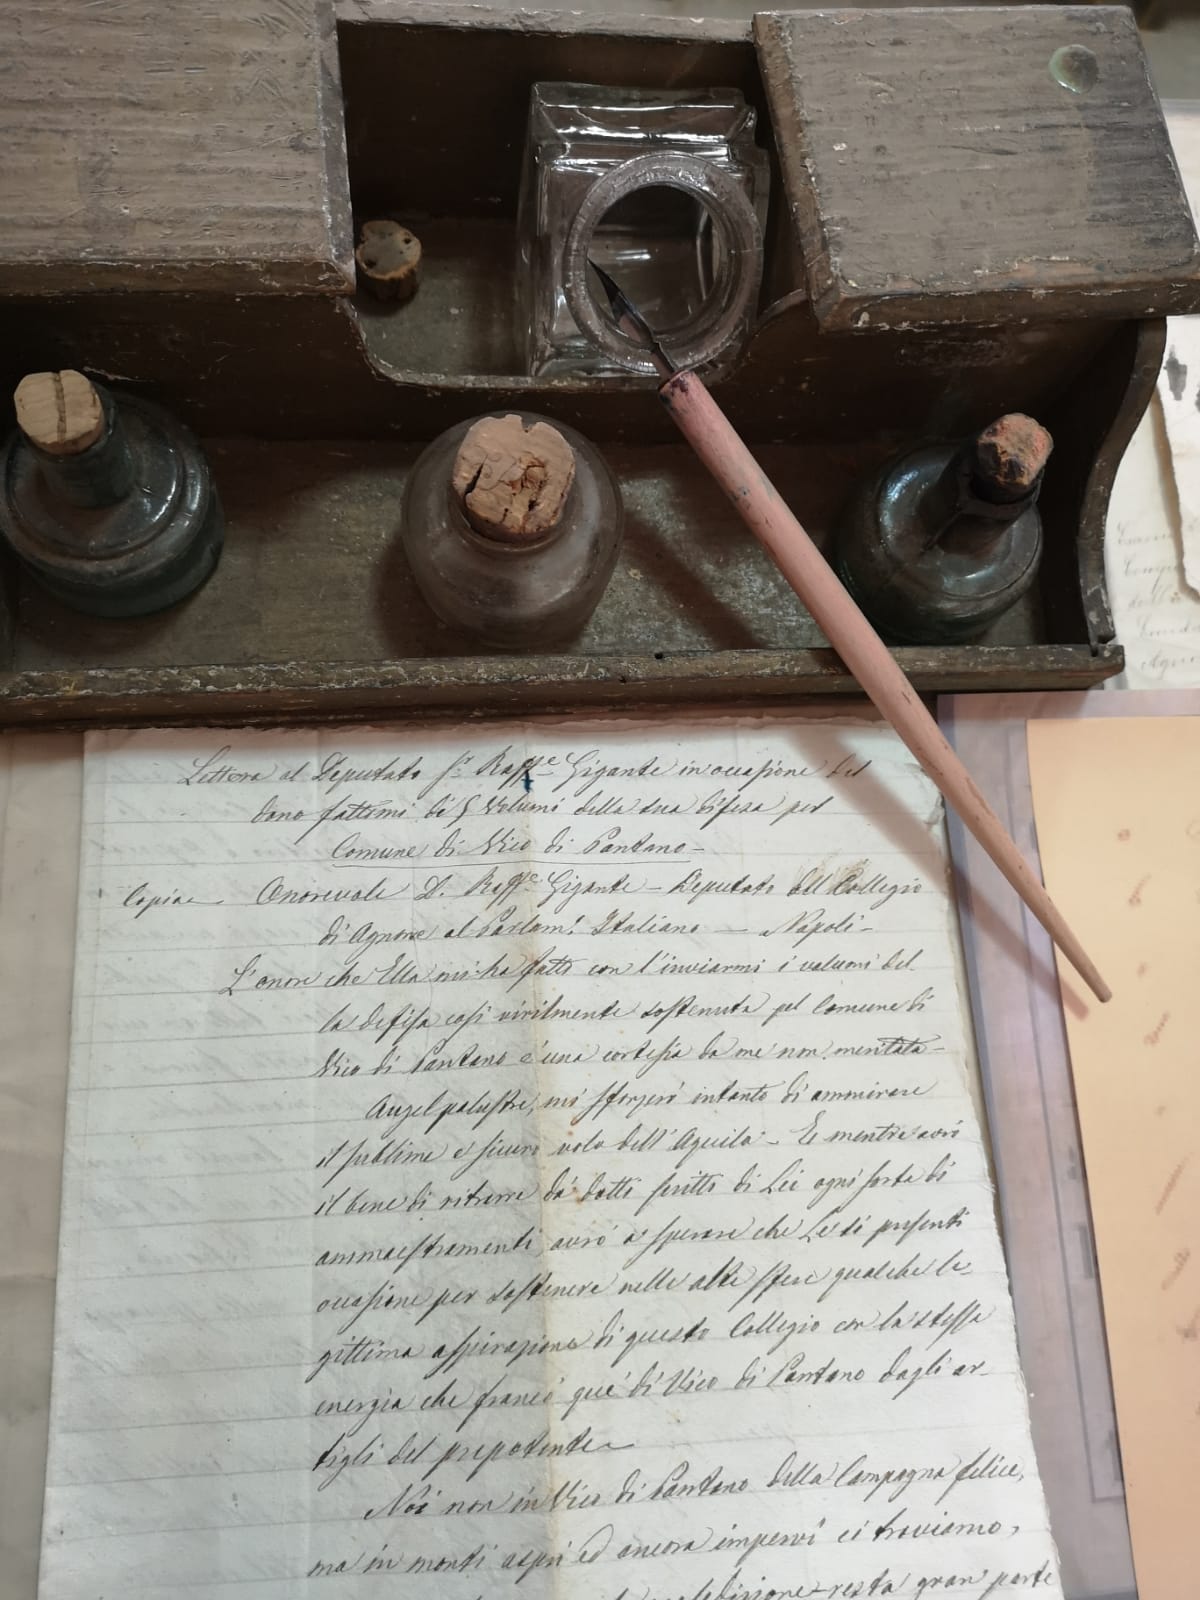 Lettera al Deputato Sr. Raffe. Gigante in occasione del
dono fattomi di 5 Volumi della sua difesa pel
Comune di Vico di Pantano -
Copia - Onorevole D. Raffe. Gigante - Deputato del Collegio
di Agnone al Parlam. Italiano - Napoli -
L'onore che Ella mi ha fatto con l'inviarmi i volumi del
la difesa così virilmente sostenuta pel Comune di
Vico di Pantano è una cortesia da me non meritata -
Augel palustre, mi sforzerò intanto di ammirare
il sublime e sicuro volo dell'Aquila - E mentre avrò
il bene di ritrarre da' dotti scritti di Lei ogni sorta di
ammaestramenti, avrò a sperare che Le si presenti
occasione per sostenere nelle alte sfere qualche le-
gittima aspirazione di questo Collegio con la stessa
energia che francò que' di Vico di Pantano dagli ar-
tigli del prepotente
Noi non in Vico di Pantano della Campagna felice,
ma in monti aspri ed ancora impervi ci troviamo,
resta gran parte